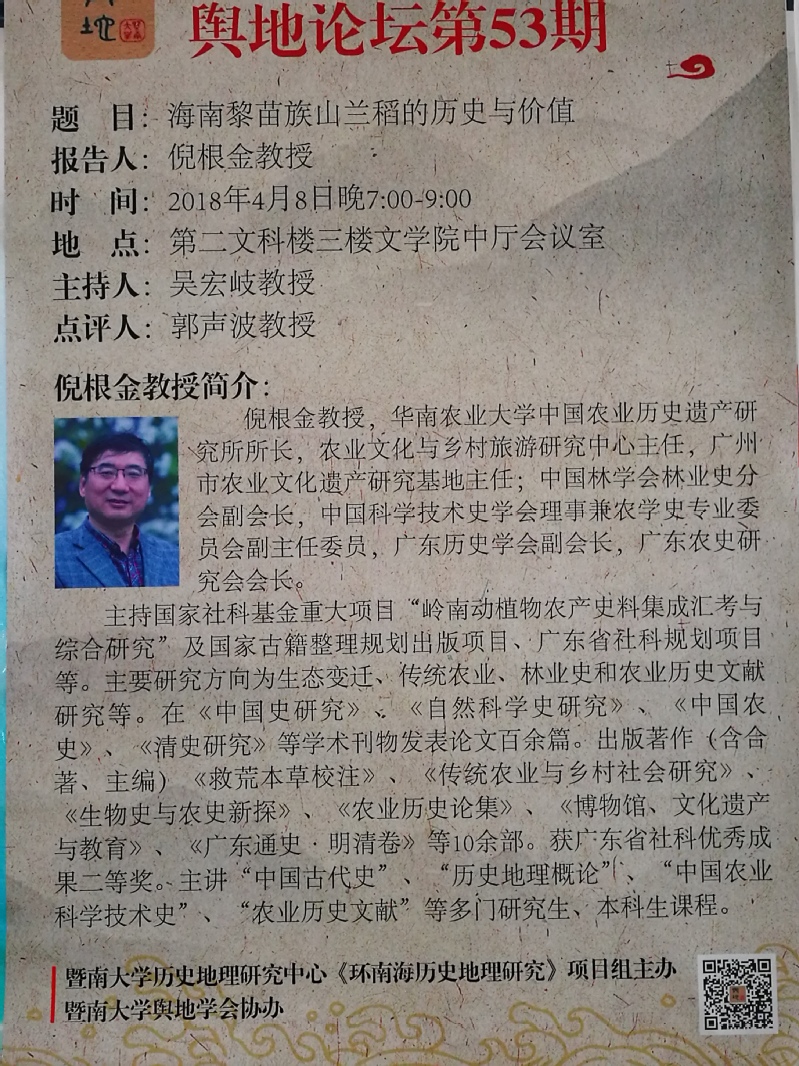 地
舆地论坛第53期
题 目：海南黎苗族山兰稻的历史与价值
报告人：倪根金教授
时 间：2018年4月8日晚7:00-9:00
地 点：第二文科楼三楼文学院中厅会议室
主持人：吴宏岐教授
点评人：郭声波教授
倪根金教授简介：
倪根金教授，华南农业大学中国农业历史遗产研
究所所长，农业文化与乡村旅游研究中心主任，广州
市农业文化遗产研究基地主任；中国林学会林业史分
会副会长，中国科学技术史学会理事兼农学史专业委
员会副主任委员，广东历史学会副会长，广东农史研
究会会长。
主持国家社科基金重大项目“岭南动植物农产史料集成汇考与
综合研究”及国家古籍整理规划出版项目、广东省社科规划项目
等。主要研究方向为生态变迁、传统农业、林业史和农业历史文献
研究等。在《中国史研究》、《自然科学史研究》、《中国农
史》、《清史研究》等学术刊物发表论文百余篇。出版著作（含合
著、主编）《救荒本草校注》、《传统农业与乡村社会研究》、
《生物史与农史新探》、《农业历史论集》、《博物馆、文化遗产
与教育》、《广东通史·明清卷》等10余部。获广东省社科优秀成
果二等奖。主讲“中国古代史”、“历史地理概论”、“中国农业
科学技术史”、“农业历史文献”等多门研究生、本科生课程。
暨南大学历史地理研究中心《环南海历史地理研究》项目组主办
暨南大学舆地学会协办